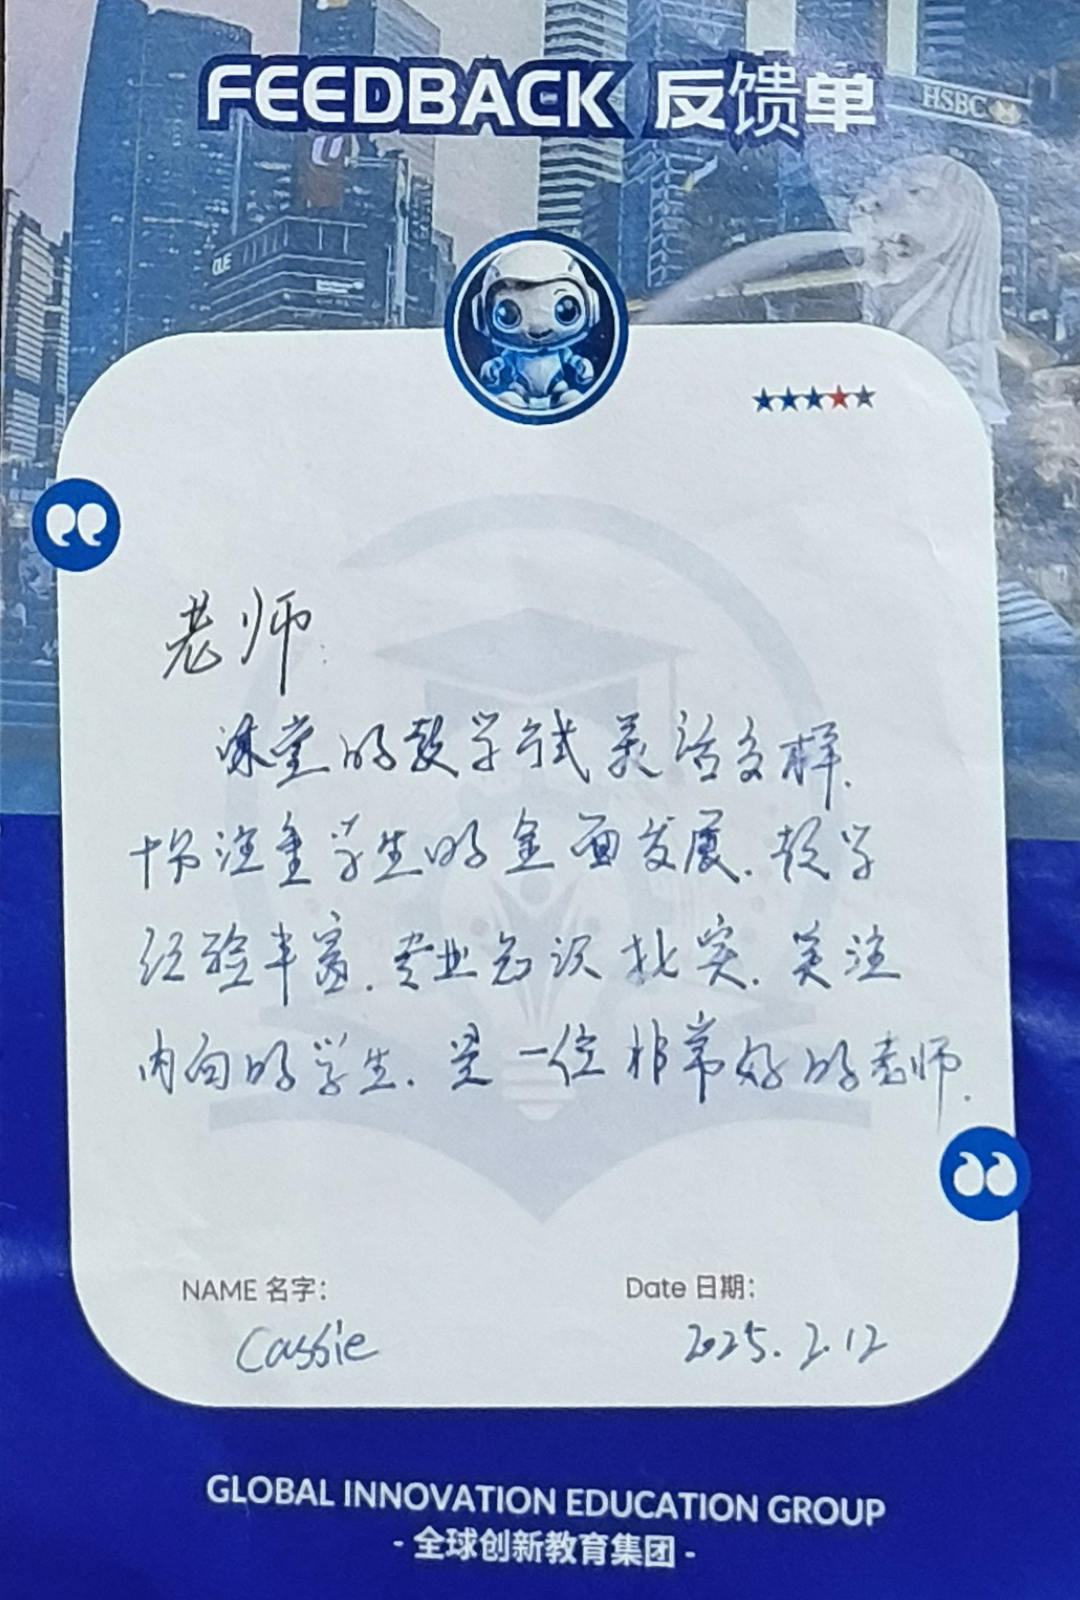 FEEDBACK 反馈单
HSBC
OUE
老师:
课堂的教学方式灵活多样.
十分注重学生的全面发展.教学
经验丰富.专业知识扎实.关注
内向的学生.是一位非常好的老师.
NAME 名字:
Date 日期:
Cassie
2025.2.12
GLOBAL INNOVATION EDUCATION GROUP
- 全球创新教育集团 -